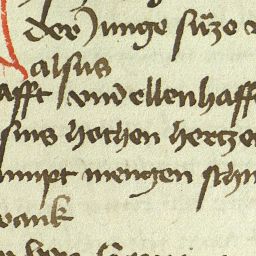 der Junge süzo
alsus
afft vnd ellenhaff
sins hochen hertzo
umpt mengen schu
wank